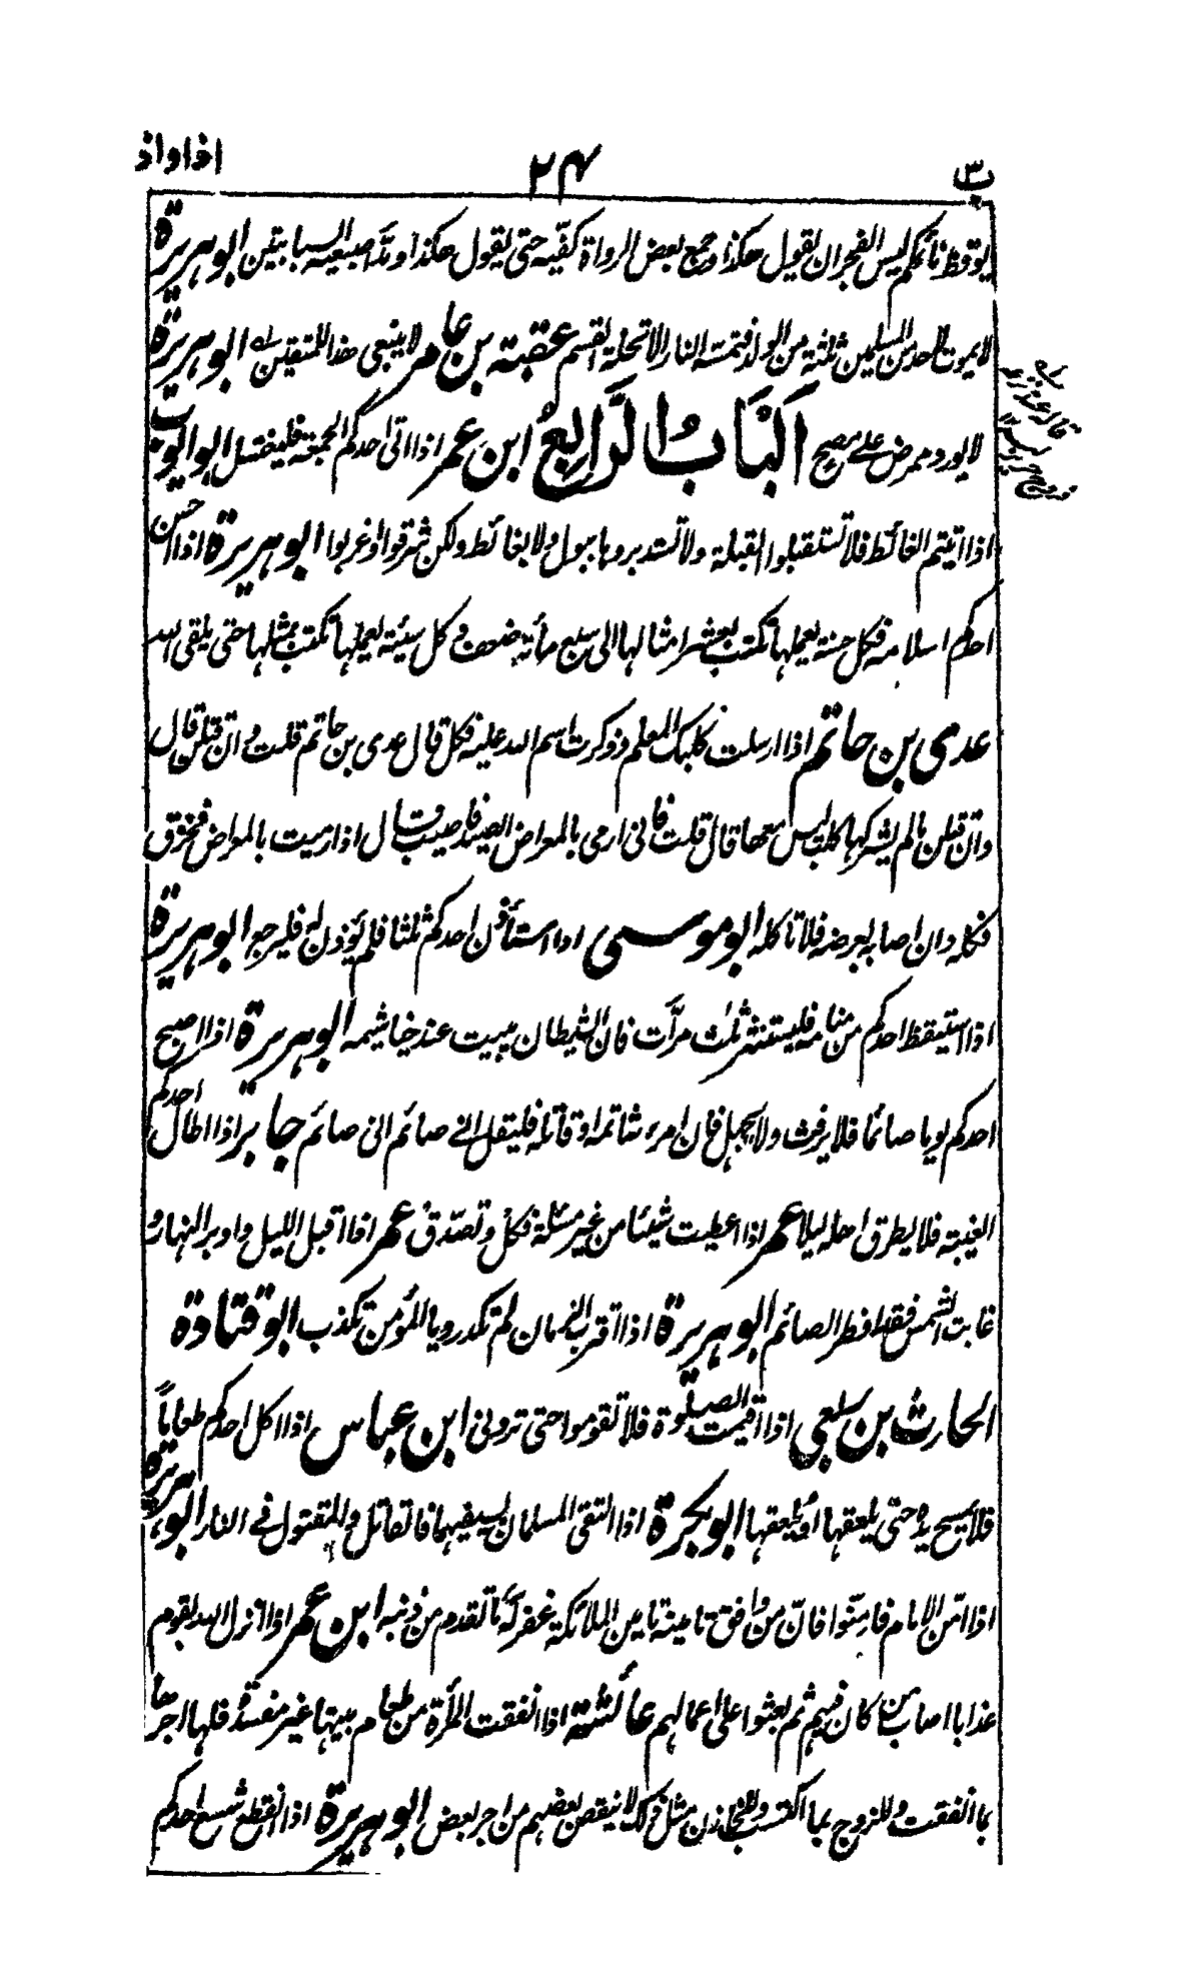 ب ۳
۲۴
اذا واذ
يوقظ نائمكم ليس الفجر ان يقول هكذا وجمع بعض الرواة كفّيه حتى يقول هكذا ومدّ اصبعيه السبابتين ابو هريرة
لا يموت لاحد من المسلمين ثلثة من الولد فتمسه النار الا تحلة القسم عقبة بن عامر لا ينبغى هذا للمتقين ابو هريرة
لا يورد ممرض على مصح اَلْبَابُ الرَّابِعُ ابن عمر اذا اتى احدكم الجمعة فليغتسل ابو ايوب
اذا اتيتم الغائط فلا تستقبلوا القبلة ولا تستدبروها ببول ولا بغائط ولكن شرقوا او غربوا ابو هريرة اذا احسن
احدكم اسلامه فكل حسنة يعملها تكتب بعشر امثالها الى سبع مأئة ضعف وكل سيئة يعملها تكتب بمثلها حتى يلقى الله
عدى بن حاتم اذا ارسلت كلبك المعلم وذكرت اسم الله عليه فكل قال عدى بن حاتم قلت وان قتلن قال
وان قتلن مالم يشركها كلب ليس معها قال قلت فانى ارمى بالمعراض الصيد فاصيب قال اذا رميت بالمعراض فخزق
فكله وان اصابه بعرضه فلا تاكله ابو موسى اذا استأذن احدكم ثلثا فلم يؤذن له فليرجع ابو هريرة
اذا استيقظ احدكم من منامه فليستنثر ثلث مرّات فان الشيطان يبيت عند خياشيمه ابو هريرة اذا اصبح
احدكم يوما صائما فلا يرفث ولا يجهل فان امرء شاتمه او قاتله فليقل انى صائم انى صائم جابر اذا اطال احدكم
الغيبة فلا يطرق اهله ليلا عمر اذا اعطيت شيئا من غير مسئلة فكل وتصدّق عمر اذا اقبل الليل وادبر النهار و
غابت الشمس فقد افطر الصائم ابو هريرة اذا اقترب الزمان لم تكد رويا المؤمن تكذب ابو قتادة
الحارث بن سلعى اذا اقيمت الصلوة فلا تقوموا حتى ترونى ابن عباس اذا اكل احدكم طعاماً
فلا يمسح يده حتى يلعقها او يلعقها ابو بكرة اذا التقى المسلمان بسيفيهما فالقاتل والمقتول فى النار ابو هريرة
اذا امّن الامام فامّنوا فانّ من وافق تامينه تامين الملائكة غفر له ما تقدم من ذنبه ابن عمر اذا انزل الله بقوم
عذابا اصاب من كان فيهم ثم بعثوا على اعمالهم عائشة اذا انفقت المرأة من طعام بيتها غير مفسدة فلها اجرها
بما انفقت وللزوج بما اكتسب وللخازن مثل ذلك لا ينقص بعضهم من اجر بعض ابو هريرة اذا انقطع شسع احدكم